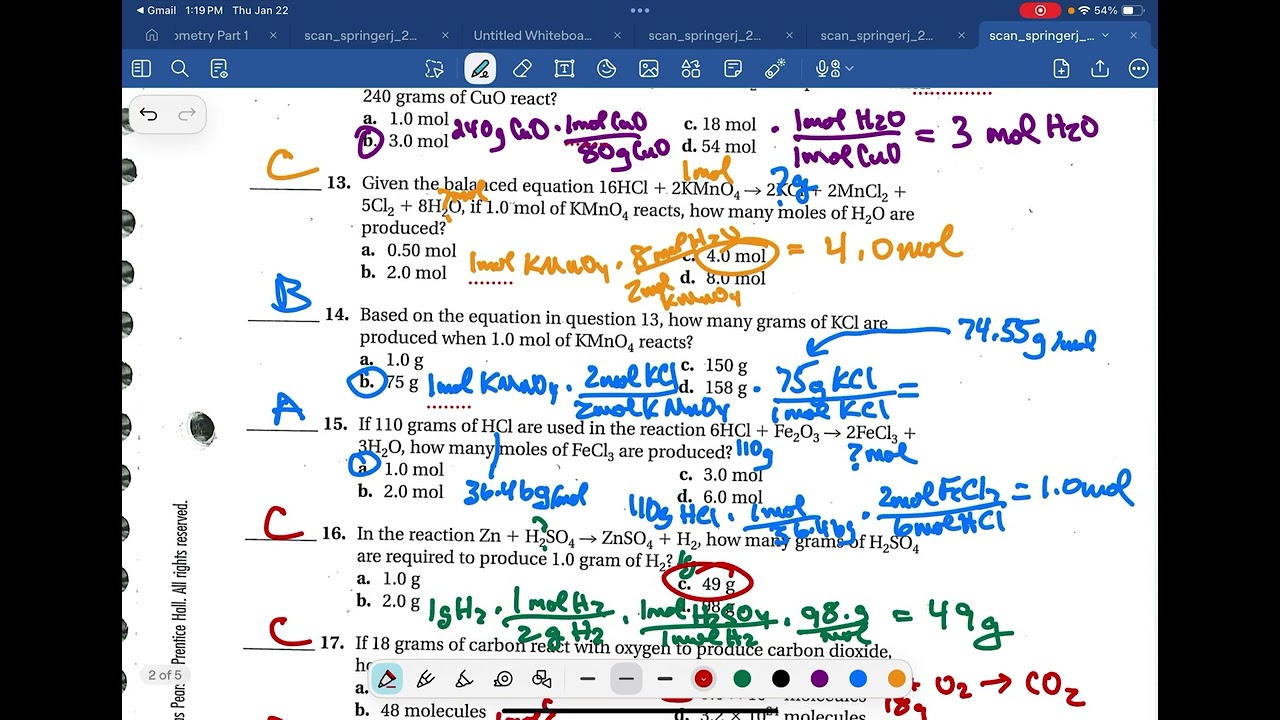 Gmail 1:19 PM Thu Jan 22 54%
ometry Part 1 scan_springerj_2... Untitled Whiteboa... scan_springerj_2... scan_springerj_2... scan_springerj_...
240 grams of CuO react?
a. 1.0 mol c. 18 mol
b. 3.0 mol d. 54 mol
240g CuO · 1mol CuO / 80g CuO · 1mol H2O / 1mol CuO = 3 mol H2O
C 13. Given the balanced equation 16HCl + 2KMnO₄ → 2KCl + 2MnCl₂ +
1mol ?g
5Cl₂ + 8H₂O, if 1.0 mol of KMnO₄ reacts, how many moles of H₂O are
?mol
produced?
a. 0.50 mol c. 4.0 mol
b. 2.0 mol d. 8.0 mol
1mol KMnO4 · 8mol H2O / 2mol KMnO4 = 4.0mol
B 14. Based on the equation in question 13, how many grams of KCl are
produced when 1.0 mol of KMnO₄ reacts?
74.55g/mol
a. 1.0 g c. 150 g
b. 75 g d. 158 g
1mol KMnO4 · 2mol KCl / 2mol KMnO4 · 75g KCl / 1mol KCl =
A 15. If 110 grams of HCl are used in the reaction 6HCl + Fe₂O₃ → 2FeCl₃ +
3H₂O, how many moles of FeCl₃ are produced?
110g ?mol
a. 1.0 mol c. 3.0 mol
b. 2.0 mol d. 6.0 mol
36.46g/mol
110g HCl · 1mol / 36.46g · 2mol FeCl3 / 6mol HCl = 1.0mol
C 16. In the reaction Zn + H₂SO₄ → ZnSO₄ + H₂, how many grams of H₂SO₄
?
are required to produce 1.0 gram of H₂?
1g
a. 1.0 g c. 49 g
b. 2.0 g d. 98 g
1g H2 · 1mol H2 / 2g H2 · 1mol H2SO4 / 1mol H2 · 98.g / mol = 49g
C 17. If 18 grams of carbon react with oxygen to produce carbon dioxide,
+ O2 → CO2
18g
b. 48 molecules molecules
2 of 5
Prentice Hall. All rights reserved.